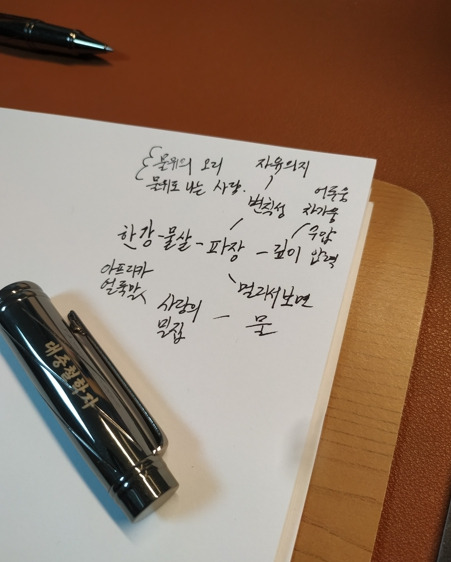 물위의 오리 자유의지
물위로 나는 사람.
변칙성
어두움
차가움
수압
압력
한강-물살-파장-깊이
아프리카
얼룩말
사랑의
밀집
멀리서보면
물
대중철학자